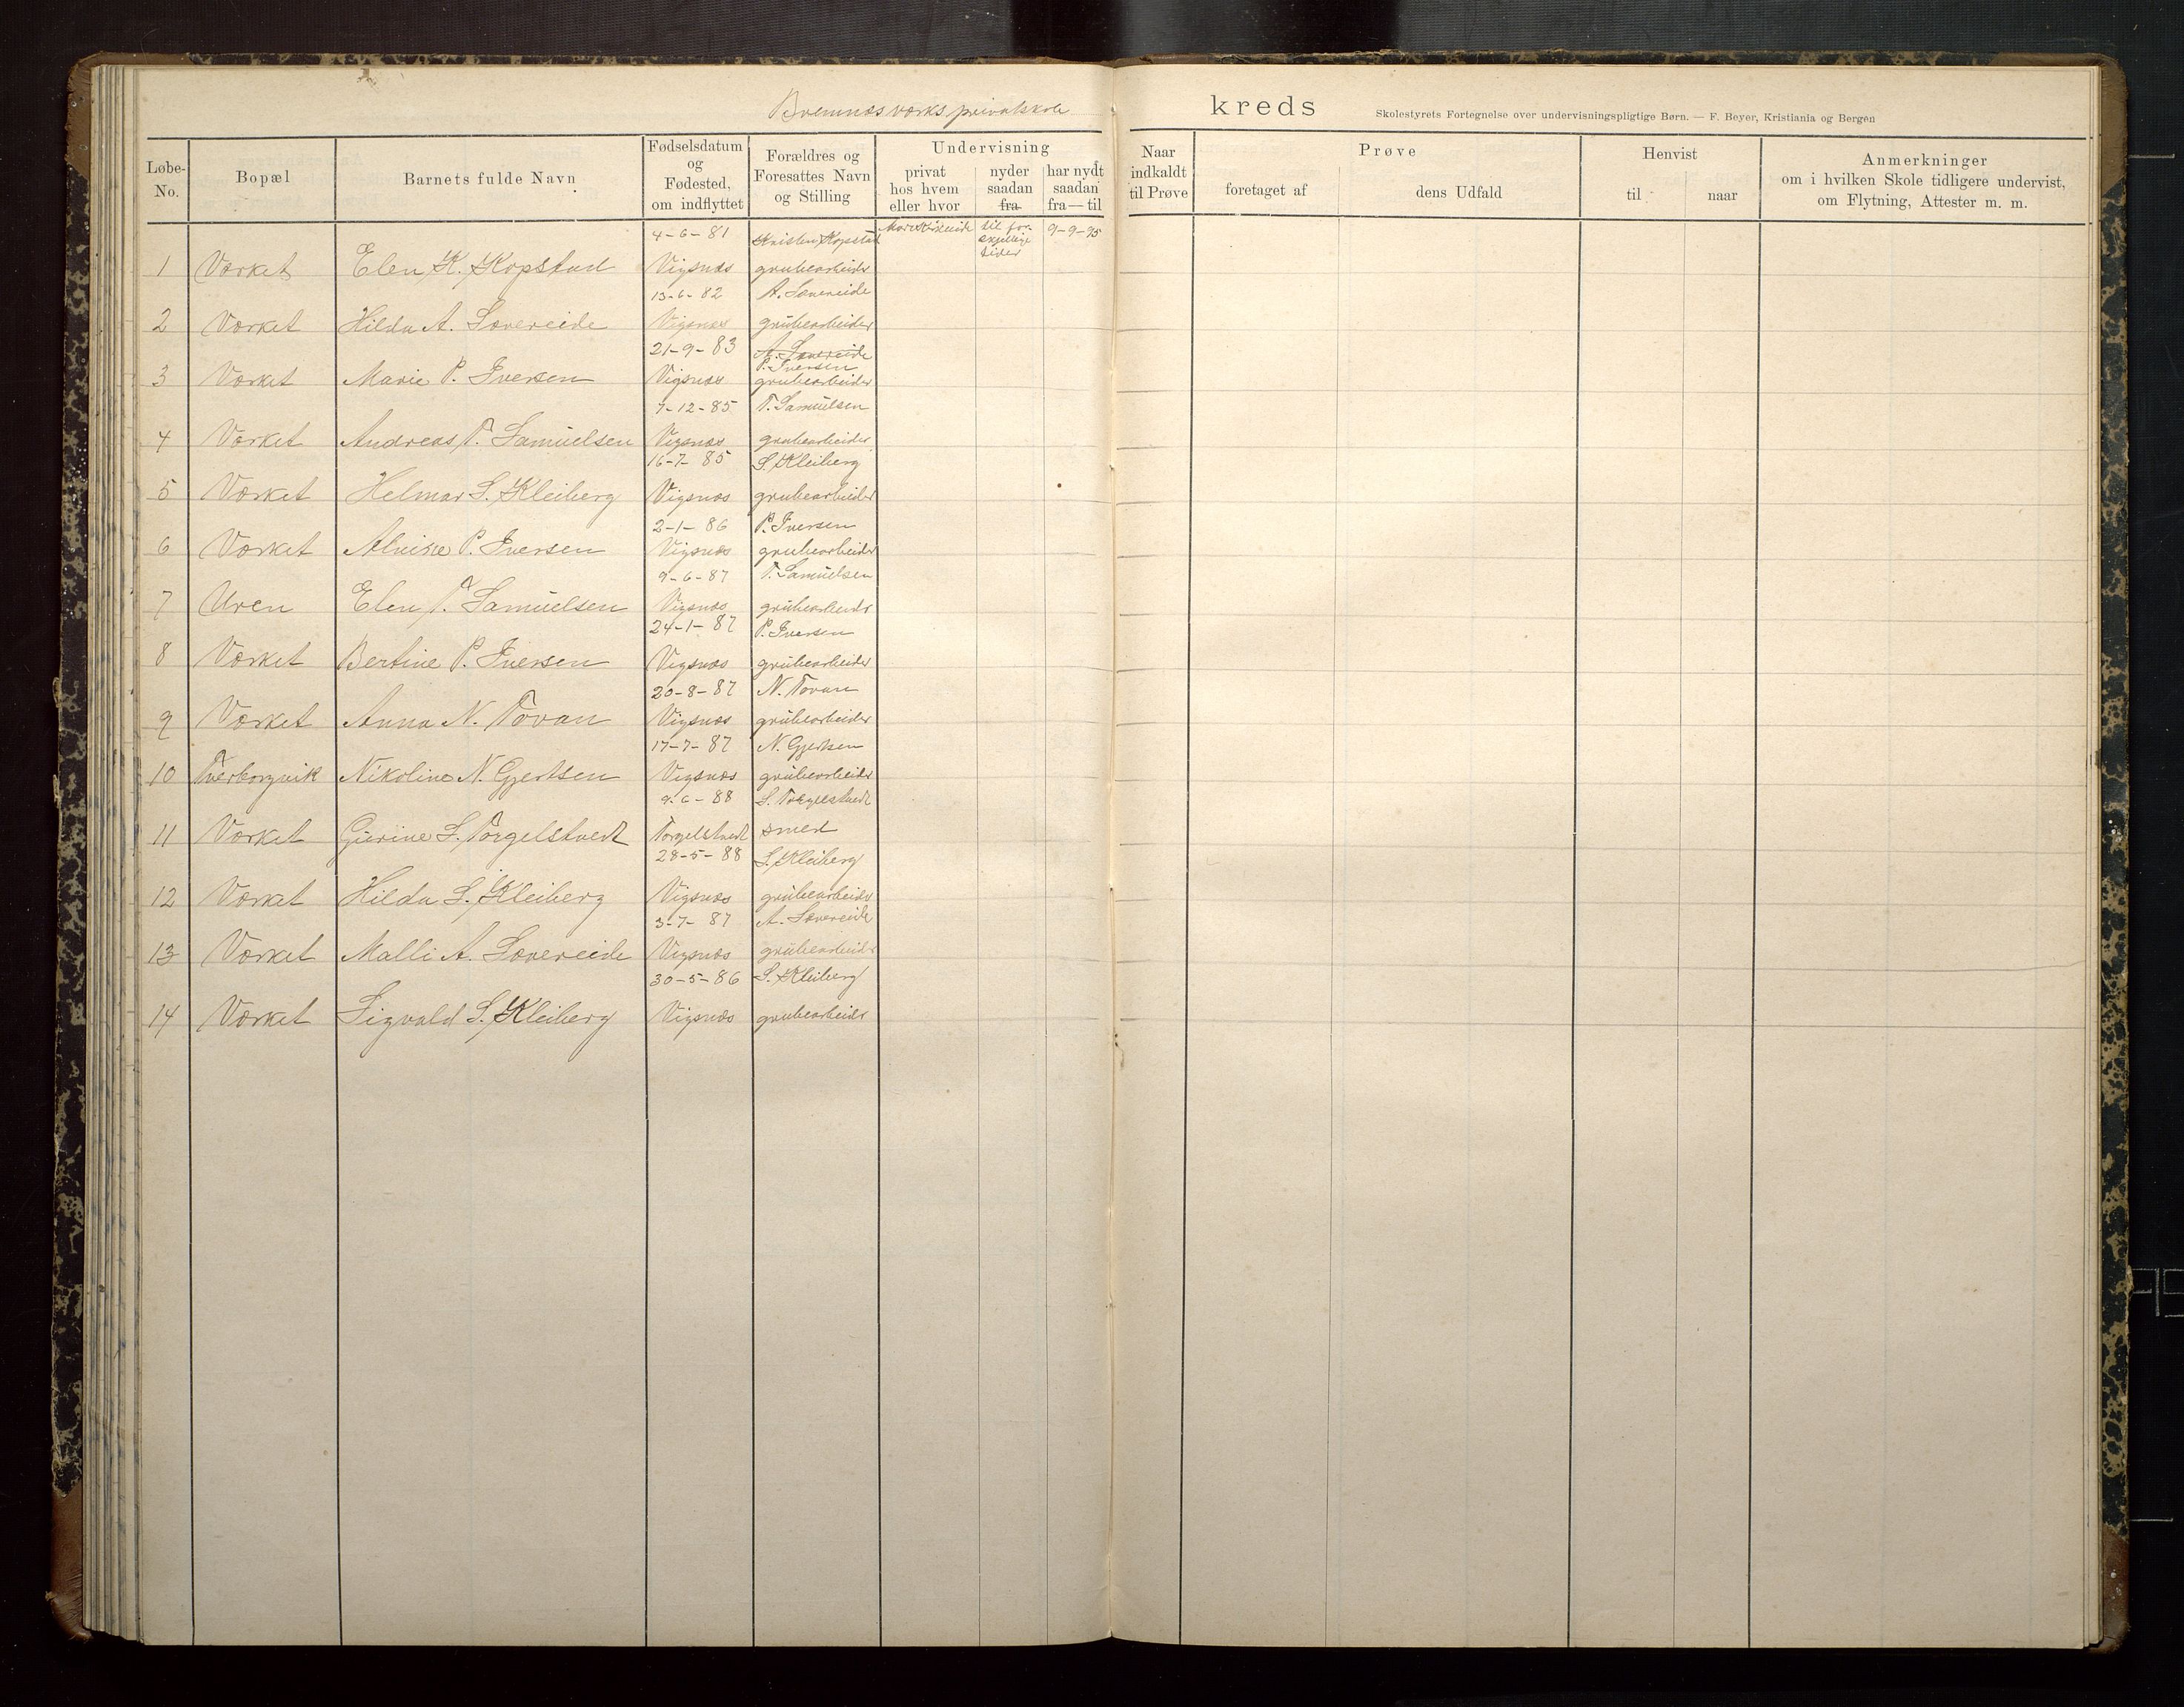 Bremnæs værks privatskole kreds Skolestyrets Fortegnelse over undervisningspligtige Børn. — F. Beyer, Kristiania og Bergen
Løbe-No. Bopæl Barnets fulde Navn Fødselsdatum og Fødested, om indflyttet Forældres og Foresattes Navn og Stilling Undervisning privat hos hvem eller hvor nyder saadan fra har nydt saadan fra — til Naar indkaldt til Prøve Prøve foretaget af dens Udfald Henvist til naar Anmerkninger om i hvilken Skole tidligere undervist, om Flytning, Attester m. m.
4-6-81 Kristen Kopstad til forskjellige tider 9-9-95
1 Værket Elen K. Kopstad Vigsnæs grubearbeider
13-6-82 A. Sævereide
2 Værket Hilda A. Sævereide Vigsnæs grubearbeider
21-9-83 A. Sævereide
P. Iversen
3 Værket Marie P. Iversen Vigsnæs grubearbeider
7-12-85 T. Samuelsen
4 Værket Andreas T. Samuelsen Vigsnæs grubearbeider
16-7-85 S. Kleiberg
5 Værket Helmar S. Kleiberg Vigsnæs grubearbeider
2-1-86 P. Iversen
6 Værket Alvine P. Iversen Vigsnæs grubearbeider
9-6-87 T. Samuelsen
7 Uren Elen T. Samuelsen Vigsnæs grubearbeider
24-1-87 P. Iversen
8 Værket Bertine P. Iversen Vigsnæs grubearbeider
20-8-87 N. Tovan
9 Værket Anna N. Tovan Vigsnæs grubearbeider
17-7-87 N. Gjertsen
10 Tverborgvik Nikoline N. Gjertsen Vigsnæs grubearbeider
9-6-88 S. Torgelstvedt
11 Værket Gurine S. Torgelstvedt Torgelstvedt smed
28-5-88 S. Kleiberg
12 Værket Hilda S. Kleiberg Vigsnæs grubearbeider
3-7-87 A. Sævereide
13 Værket Malli A. Sævereide Vigsnæs grubearbeider
30-5-86 S. Kleiberg
14 Værket Sigvald S. Kleiberg Vigsnæs grubearbeider